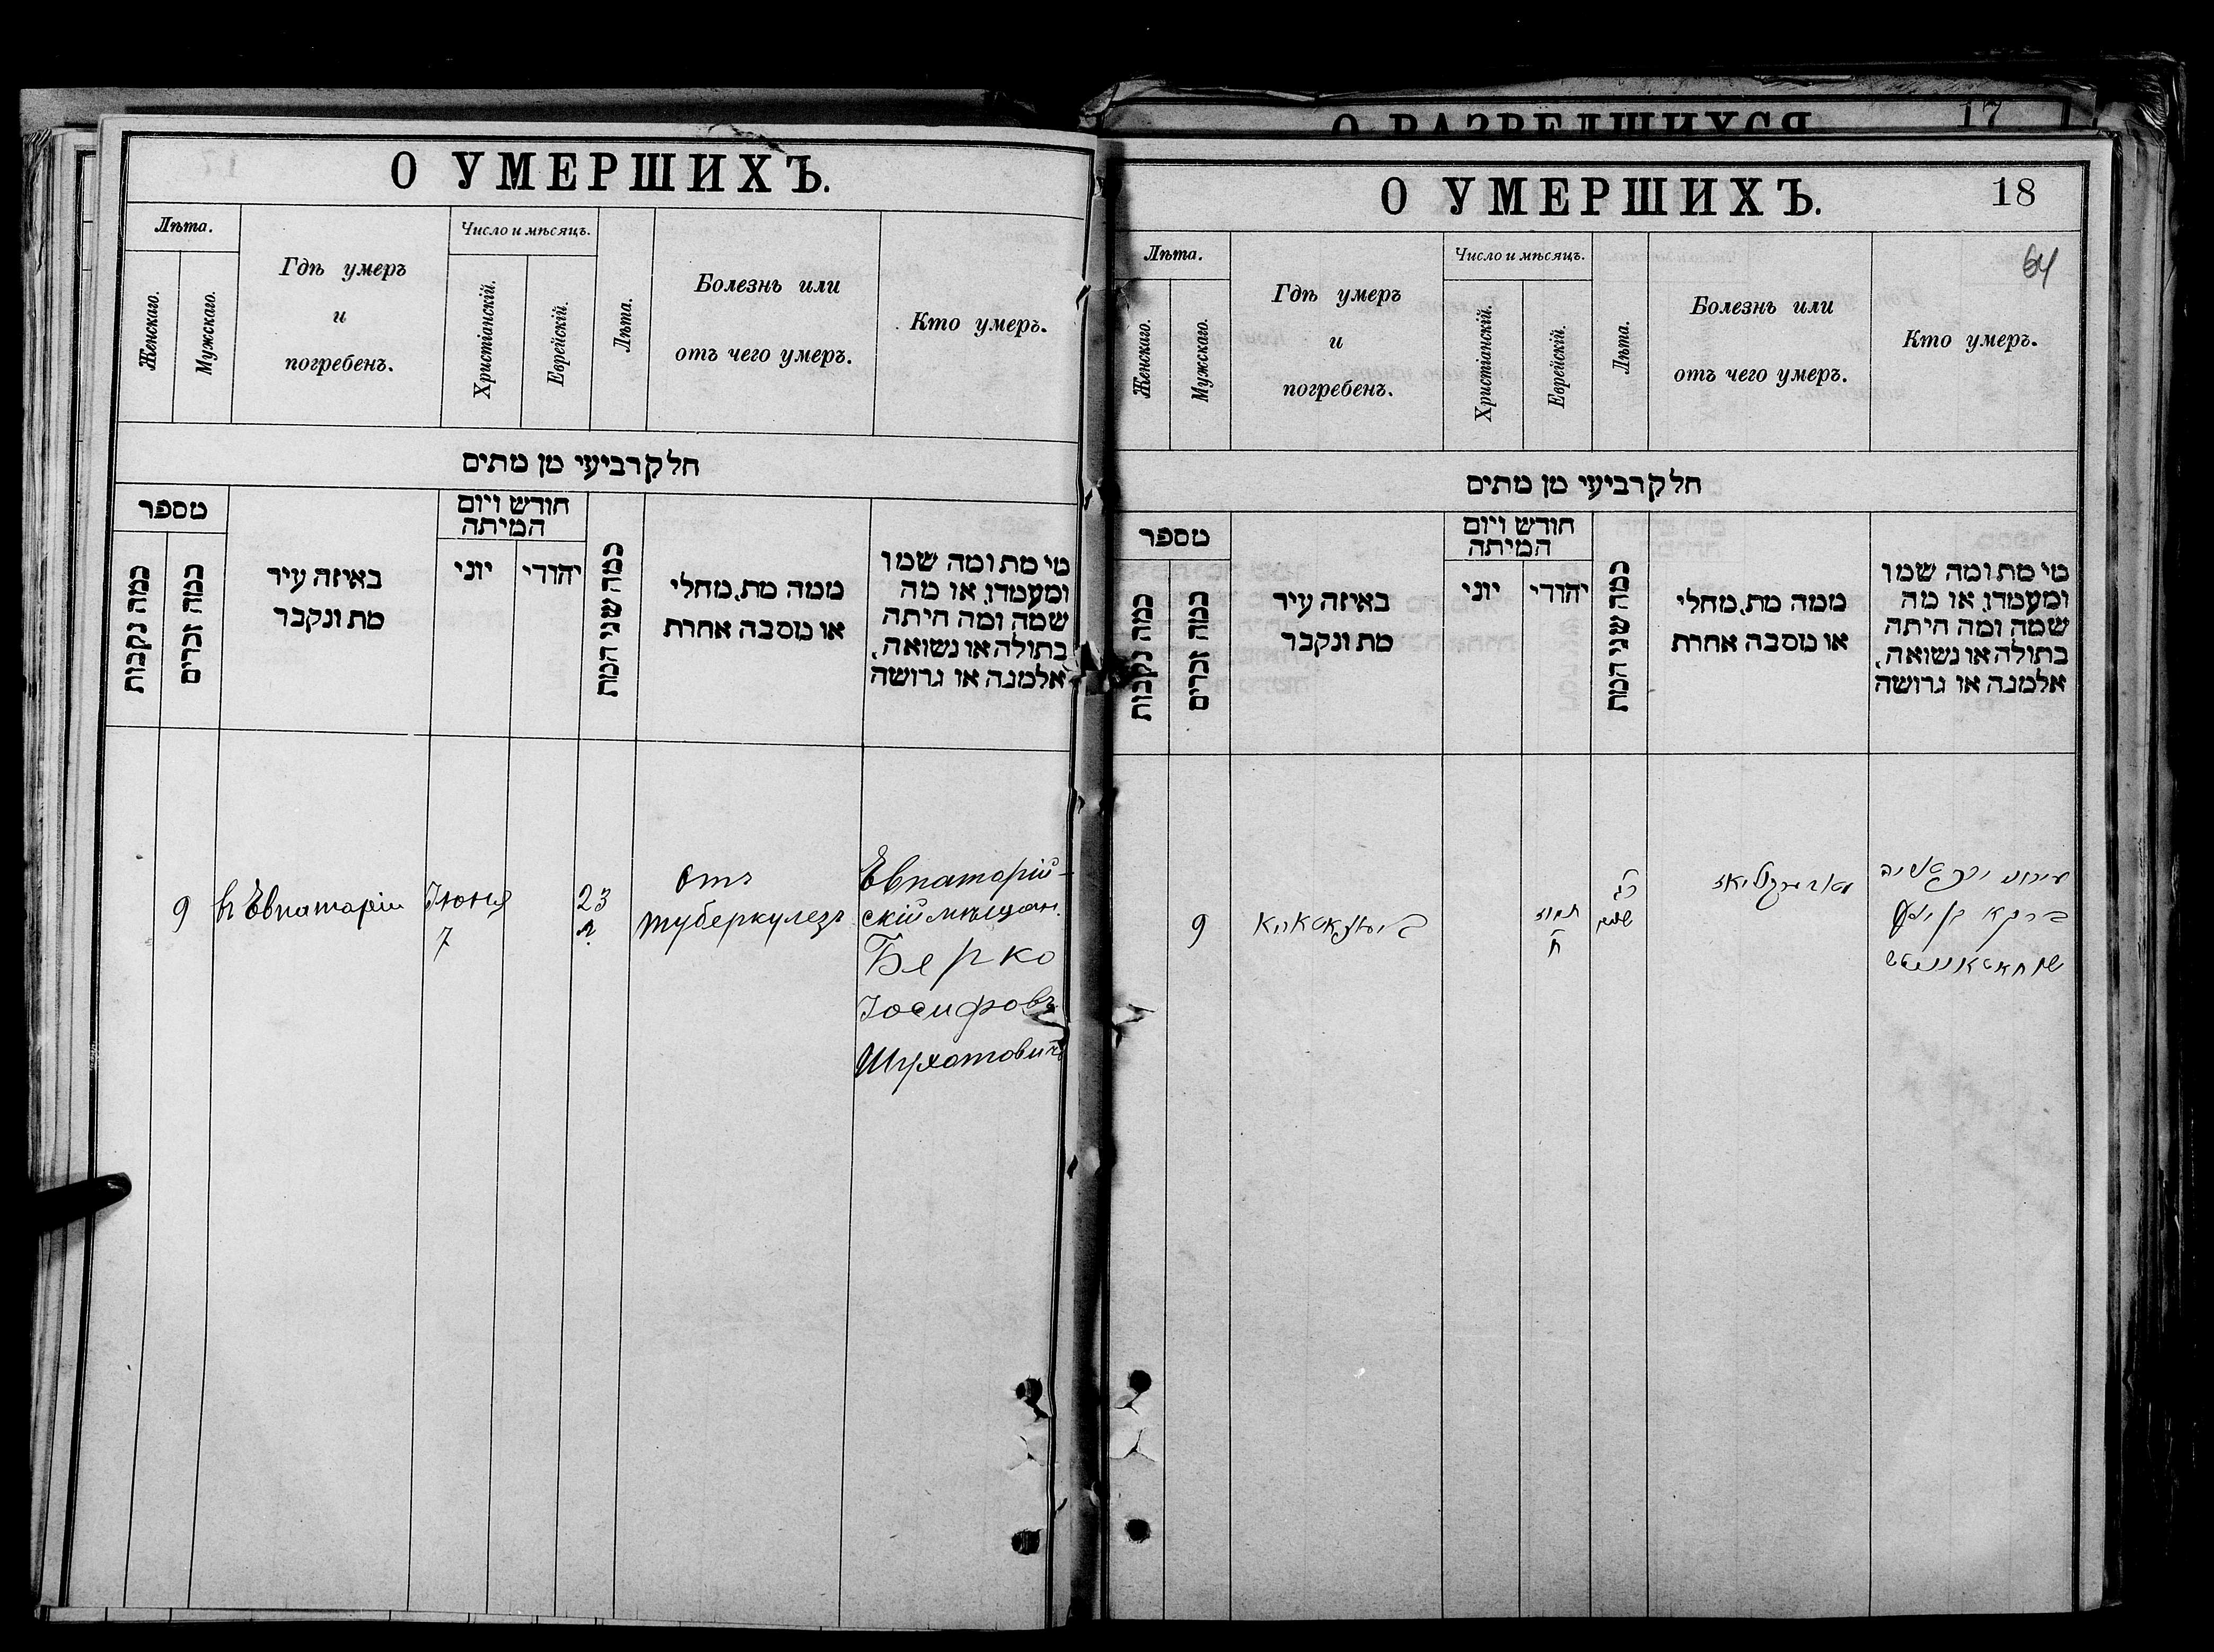 О УМЕРШИХЪ.
Лѣта.
Женскаго.
Мужскаго.
Гдѣ умеръ
и
погребенъ.
Число и мѣсяцъ.
Христіанскій.
Еврейскій.
Лѣта.
Болезнь или
отъ чего умеръ.
Кто умеръ.
חלק רביעי מן מתים
מספר
כמה נקבות
כמה זכרים
באיזה עיר
מת ונקבר
חודש ויום
המיתה
יוני
יהודי
כמה שני המת
ממה מת, מחלי
או מסבה אחרת
מי מת ומה שמו
ומעמדו, או מה
שמה ומה היתה
בתולה או נשואה,
אלמנה או גרושה
9
въ Евпаторіи
Іюня
7
23
л.
отъ
туберкулезъ
Евпаторій-
скій мѣщан.
Берко
Іосифовъ
Шухатовичъ
О РАЗВЕДШИХСЯ
17
О УМЕРШИХЪ.
18
64
Лѣта.
Женскаго.
Мужскаго.
Гдѣ умеръ
и
погребенъ.
Число и мѣсяцъ.
Христіанскій.
Еврейскій.
Лѣта.
Болезнь или
отъ чего умеръ.
Кто умеръ.
חלק רביעי מן מתים
מספר
כמה נקבות
כמה זכרים
באיזה עיר
מת ונקבר
חודש ויום
המיתה
יוני
יהודי
כמה שני המת
ממה מת, מחלי
או מסבה אחרת
מי מת ומה שמו
ומעמדו, או מה
שמה ומה היתה
בתולה או נשואה,
אלמנה או גרושה
9
תמוז
ח
כג
שנים